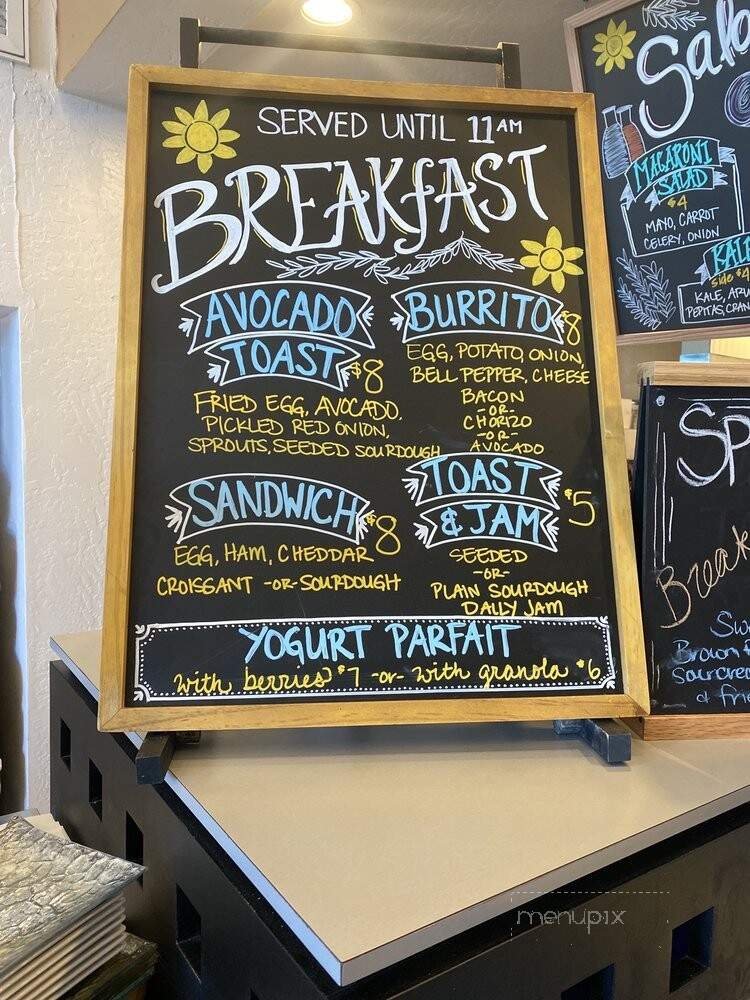 SERVED UNTIL 11 AM
BREAKFAST
AVOCADO
TOAST $8
FRIED EGG, AVOCADO,
PICKLED RED ONION,
SPROUTS, SEEDED SOURDOUGH
BURRITO $8
EGG, POTATO, ONION,
BELL PEPPER, CHEESE
BACON
-OR-
CHORIZO
-OR-
AVOCADO
SANDWICH $8
EGG, HAM, CHEDDAR
CROISSANT -OR- SOURDOUGH
TOAST
& JAM $5
SEEDED
-OR-
PLAIN SOURDOUGH
DAILY JAM
YOGURT PARFAIT
with berries $7 -or- with granola $6
MACARONI
SALAD
$4
MAYO, CARROT
CELERY, ONION
side $4
menupix